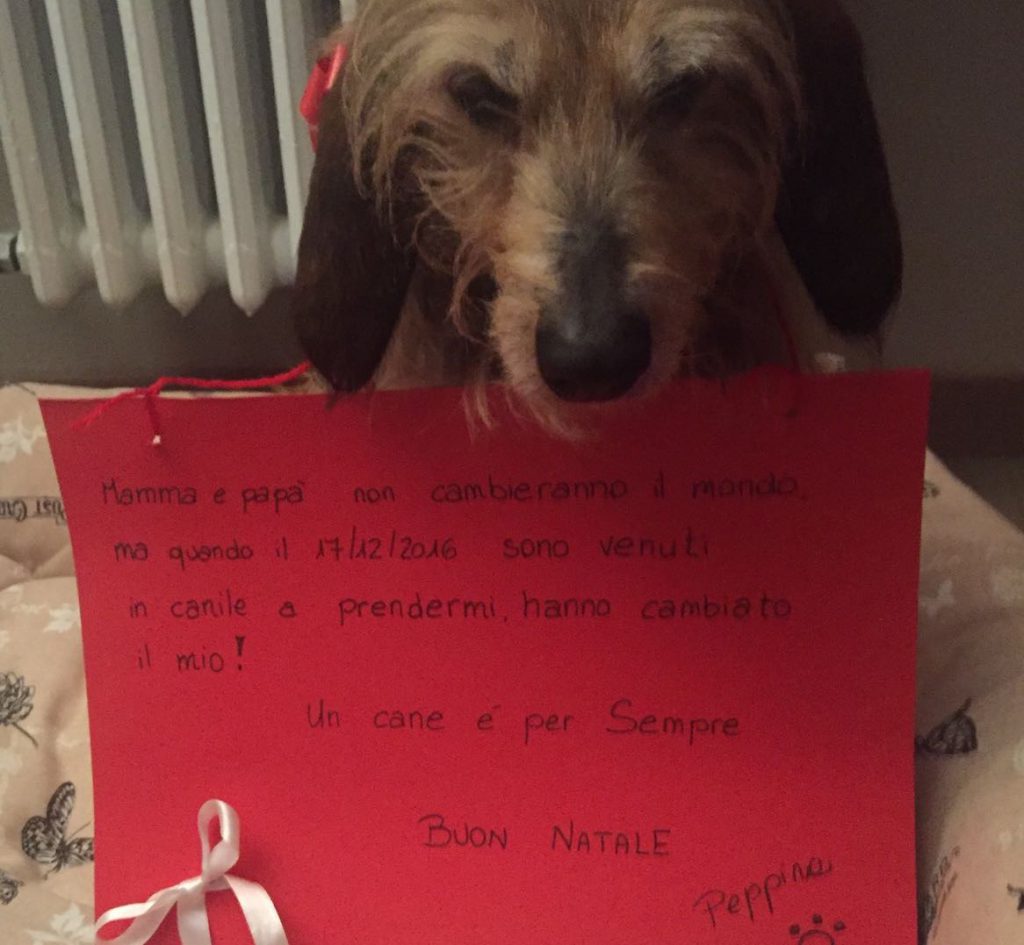 Mamma e papà non cambieranno il mondo,
ma quando il 17/12/2016 sono venuti
in canile a prendermi, hanno cambiato
il mio!
Un cane é per Sempre
BUON NATALE
Peppina